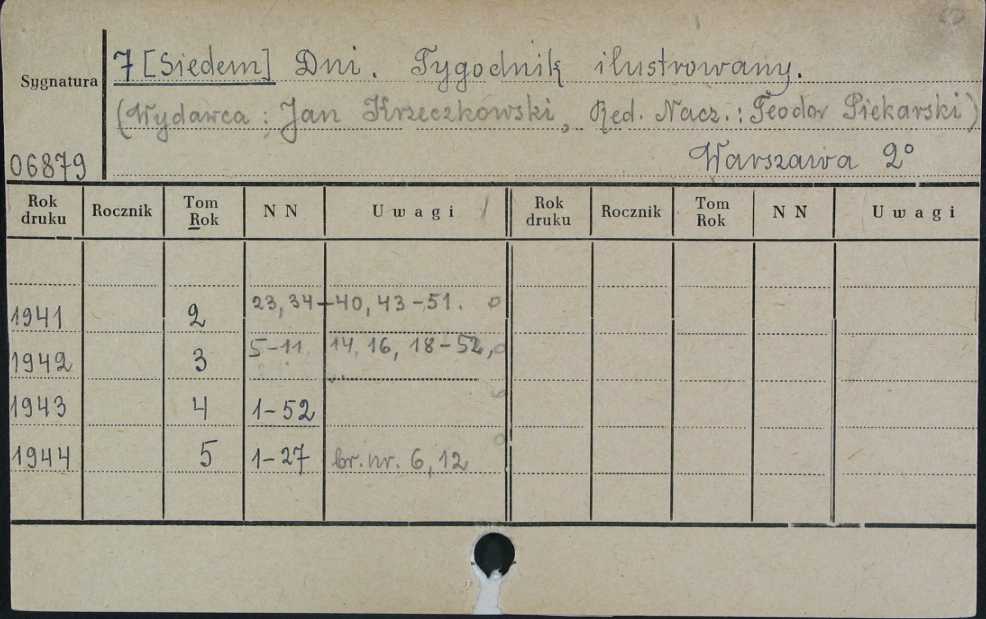 7 [Siedem] Dni. Tygodnik ilustrowany.
Sygnatura
(Wydawca: Jan Krzeczkowski, Red. Nacz.: Teodor Piekarski)
06879 Warszawa 2°
Rok druku Rocznik Tom Rok N N Uwagi Rok druku Rocznik Tom Rok N N Uwagi
1941 2 23, 34-40, 43-51.
1942 3 5-11, 14, 16, 18-52,
1943 4 1-52
1944 5 1-27 br. nr. 6, 12